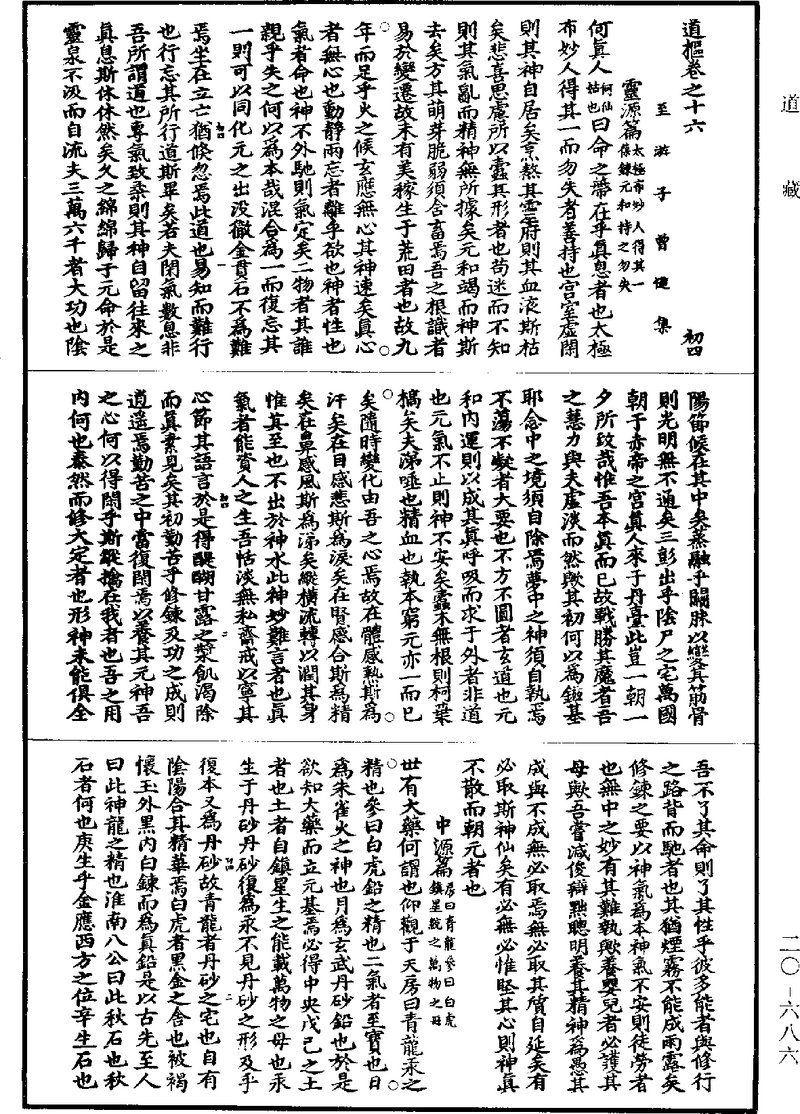 道藏
二〇-六八六
道樞卷之十六 初四
至游子曾慥集
靈源篇 太極布妙人得其一
保鍊元和持之勿失
何真人何仙姑也曰命之蔕在乎真息者也太極
布妙人得其一而勿失者善持也宫室虛閑
則其神自居矣烹熬其靈府則其血液斯枯
矣悲喜思慮所以蠹其形者也苟迷而不知
則其氣亂而精神無所據矣元和竭而神斯
去矣方其萌芽脆弱須含畜焉吾之根識者
易於變遷故未有美稼生于荒田者也故九
年而足乎火之候玄應無心其神速矣真心
者無心也動静兩忘者離乎欲也神者性也
氣者命也神不外馳則氣定矣二物者其誰
親乎失之何以為本哉混合為一而復忘其
一則可以同化元之出没徹金貫石不為難
焉坐在立亡猶倏忽焉此道也易知而難行
也行忘其所行道斯畢矣若夫閉氣數息非
吾所謂道也專氣致柔則其神自留往來之
真息斯休休然矣久之綿綿歸于元命於是
靈泉不汲而自流夫三萬六千者大功也陰
陽節候在其中矣蒸融乎關脉以變其筋骨
則光明無不通矣三彭出乎陰尸之宅萬國
朝于赤帝之宫真人來于丹臺此豈一朝一
夕所致哉惟吾本真而已故戰勝其魔者吾
之慧力與夫虛淡而然歟其初何以為鎡基
耶念中之境須自除焉夢中之神須自執焉
不蕩不凝者大要也不方不圓者玄道也元
和内運則以成其真呼吸而求于外者非道
也元氣不止則神不安矣蠹木無根則柯葉
槁矣夫涕唾也精血也執本窮元亦一而已
矣隨時變化由吾之心焉故在體感熱斯為
汗矣在目感悲斯為淚矣在腎感合斯為精
矣在鼻感風斯為涕矣縱橫流轉以潤其身
惟其至也不出於神水此神妙難言者也真
氣者能資人之生吾恬淡無私齋戒以寧其
心節其語言於是得醍醐甘露之漿飢渴除
而真素見矣其初勤苦乎修鍊及功之成則
逍遥焉勤苦之中當復閑焉以養其元神吾
之心何以得閑乎斯縱擒在我者也吾之用
内何也泰然而修大定者也形神未能俱全
吾不了其命則了其性乎彼多能者與修行
之路背而馳者也其猶煙霧不能成雨露矣
修鍊之要以神氣為本神氣不安則徒勞者
也無中之妙有其難執歟養嬰兒者必護其
母歟吾嘗減俊辯黜聰明養其精神為愚其
成與不成無必取焉無必取其質自延矣有
必取斯神仙矣有必無必惟堅其心則神真
不散而朝元者也
中源篇 房曰青龍參曰白虎
鎮星統之萬物之母
世有大藥何謂也仰觀于天房曰青龍汞之
精也參曰白虎鉛之精也二氣者至寶也日
為朱雀火之神也月為玄武丹砂鉛也於是
欲知大藥而立元基焉必得中央戊己之土
者也土者自鎮星生之能載萬物之母也汞
生于丹砂丹砂復為汞不見丹砂之形及乎
復本又為丹砂故青龍者丹砂之宅也自有
陰陽合其精華焉白虎者黑金之舍也被褐
懷玉外黑内白鍊而為真鉛是以古先至人
曰此神龍之精也淮南八公曰此秋石也秋
石者何也庚生乎金應西方之位辛生石也